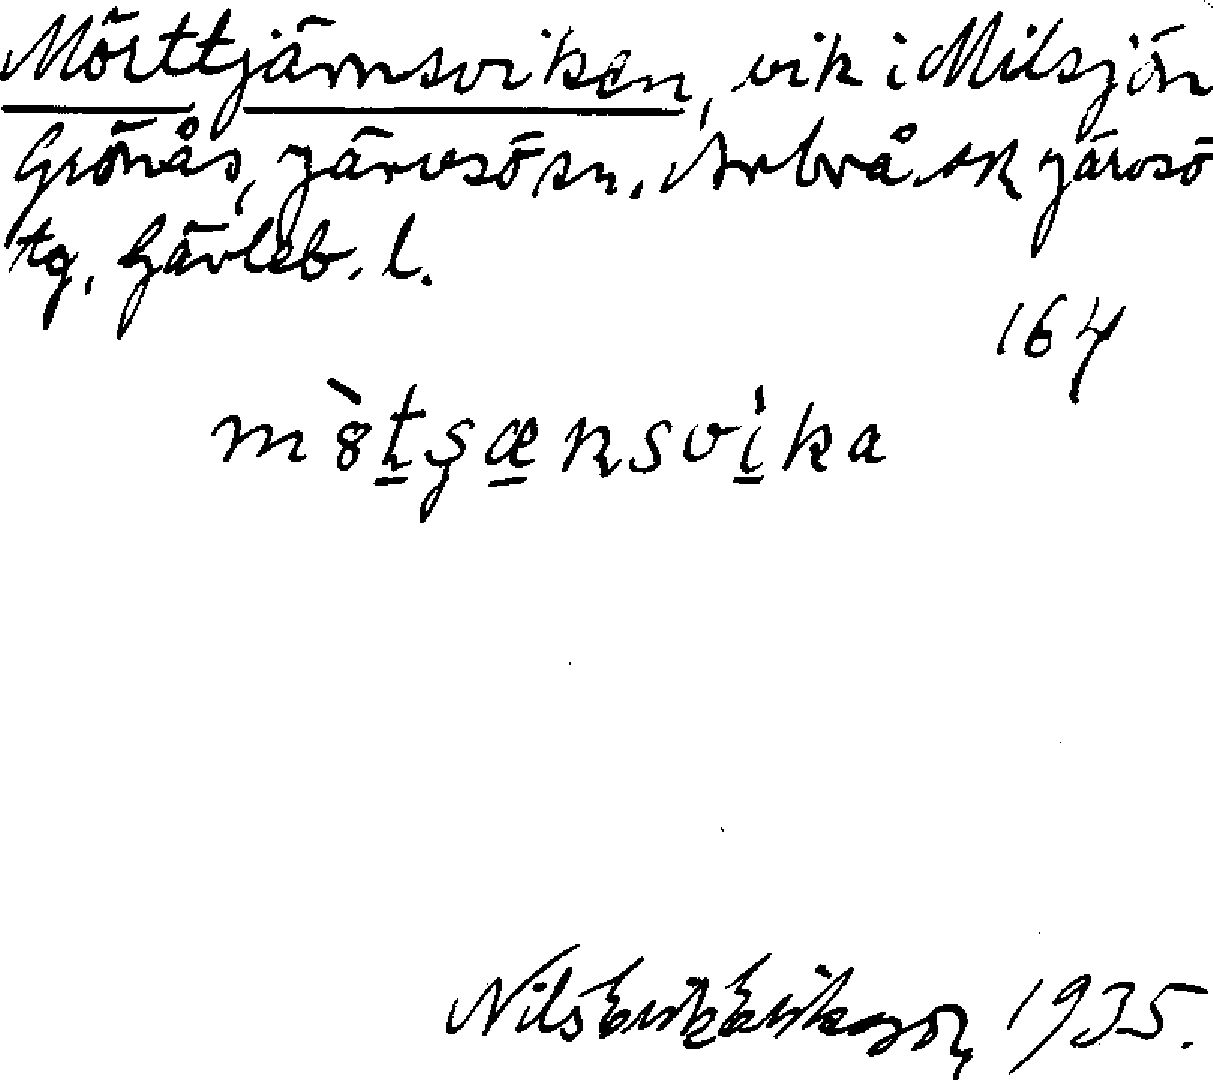 Mörttjärnsviken, vik i Milsjön
Grönås, Järvsö sn, Arbrå ok Järvsö
tg, Gävleb. l.
164
m8̀tşænsvìka
Nils Erik Eriksson, 1935.